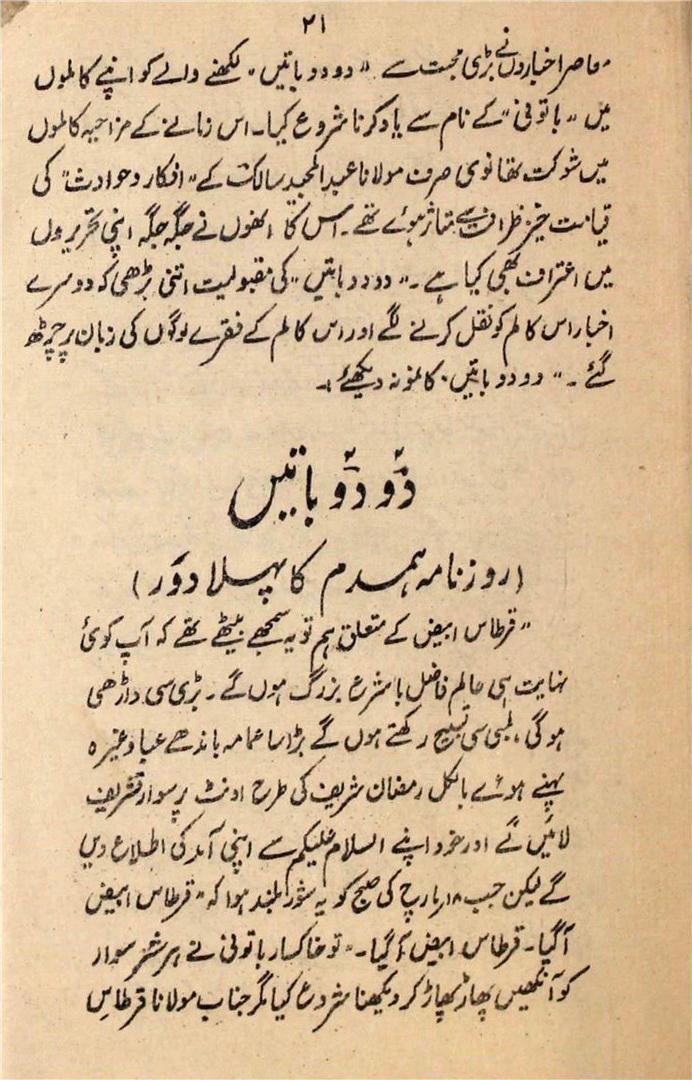 ۲۱
معاصر اخباروں نے بڑی محبت سے "دو دو باتیں" لکھنے والے کو اپنے کالموں
میں "باتونی" کے نام سے یاد کرنا شروع کیا۔ اس زمانے کے مزاحیہ کالموں
میں شوکت تھانوی صرف مولانا عبدالمجید سالک کے "افکار و حوادث" کی
قیامت خیز ظرافت سے متاثر ہوئے تھے۔ اس کا انھوں نے جگہ جگہ اپنی تحریروں
میں اعتراف بھی کیا ہے۔ "دو دو باتیں" کی مقبولیت اتنی بڑھی کہ دوسرے
اخبار اس کالم کو نقل کرنے لگے اور اس کالم کے فقرے لوگوں کی زبان پر چڑھ
گئے۔ "دو دو باتیں" کا نمونہ دیکھئے:۔
دو دو باتیں
(روزنامہ ہمدم کا پہلا دور)
"قرطاس ابیض کے متعلق ہم تو یہ سمجھے بیٹھے تھے کہ آپ کوئی
نہایت ہی عالم فاضل باشرع بزرگ ہوں گے۔ بڑی سی داڑھی
ہوگی، لمبی سی تسبیح رکھتے ہوں گے بڑا سا عمامہ باندھے عبا وغیرہ
پہنے ہوئے بالکل رمضان شریف کی طرح اونٹ پر سوار تشریف
لائیں گے اور خود اپنے السلام علیکم سے اپنی آمد کی اطلاع دیں
گے لیکن جب ۱۸ مارچ کی صبح کو یہ شور بلند ہوا کہ "قرطاس ابیض
آگیا۔ قرطاس ابیض آگیا۔" تو خاکسار باتونی نے ہر شتر سوار
کو آنکھیں پھاڑ پھاڑ کر دیکھنا شروع کیا مگر جناب مولانا قرطاس